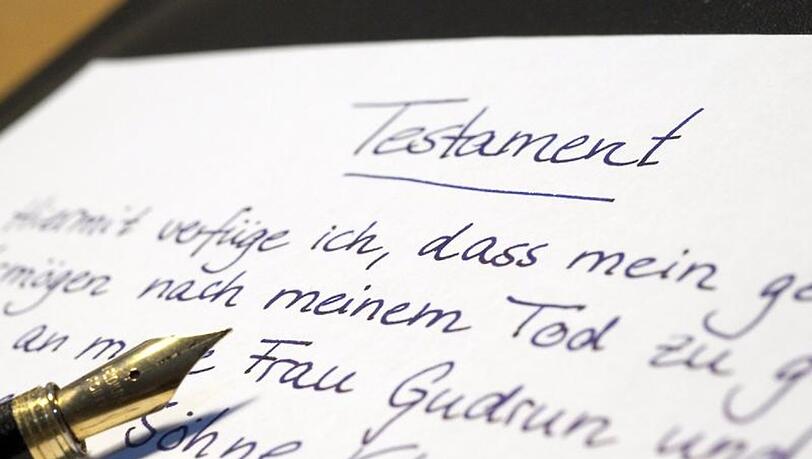 Testament
Hiermit verfüge ich, dass mein
nach meinem Tod zu
an Frau Gudrun und
Söhne